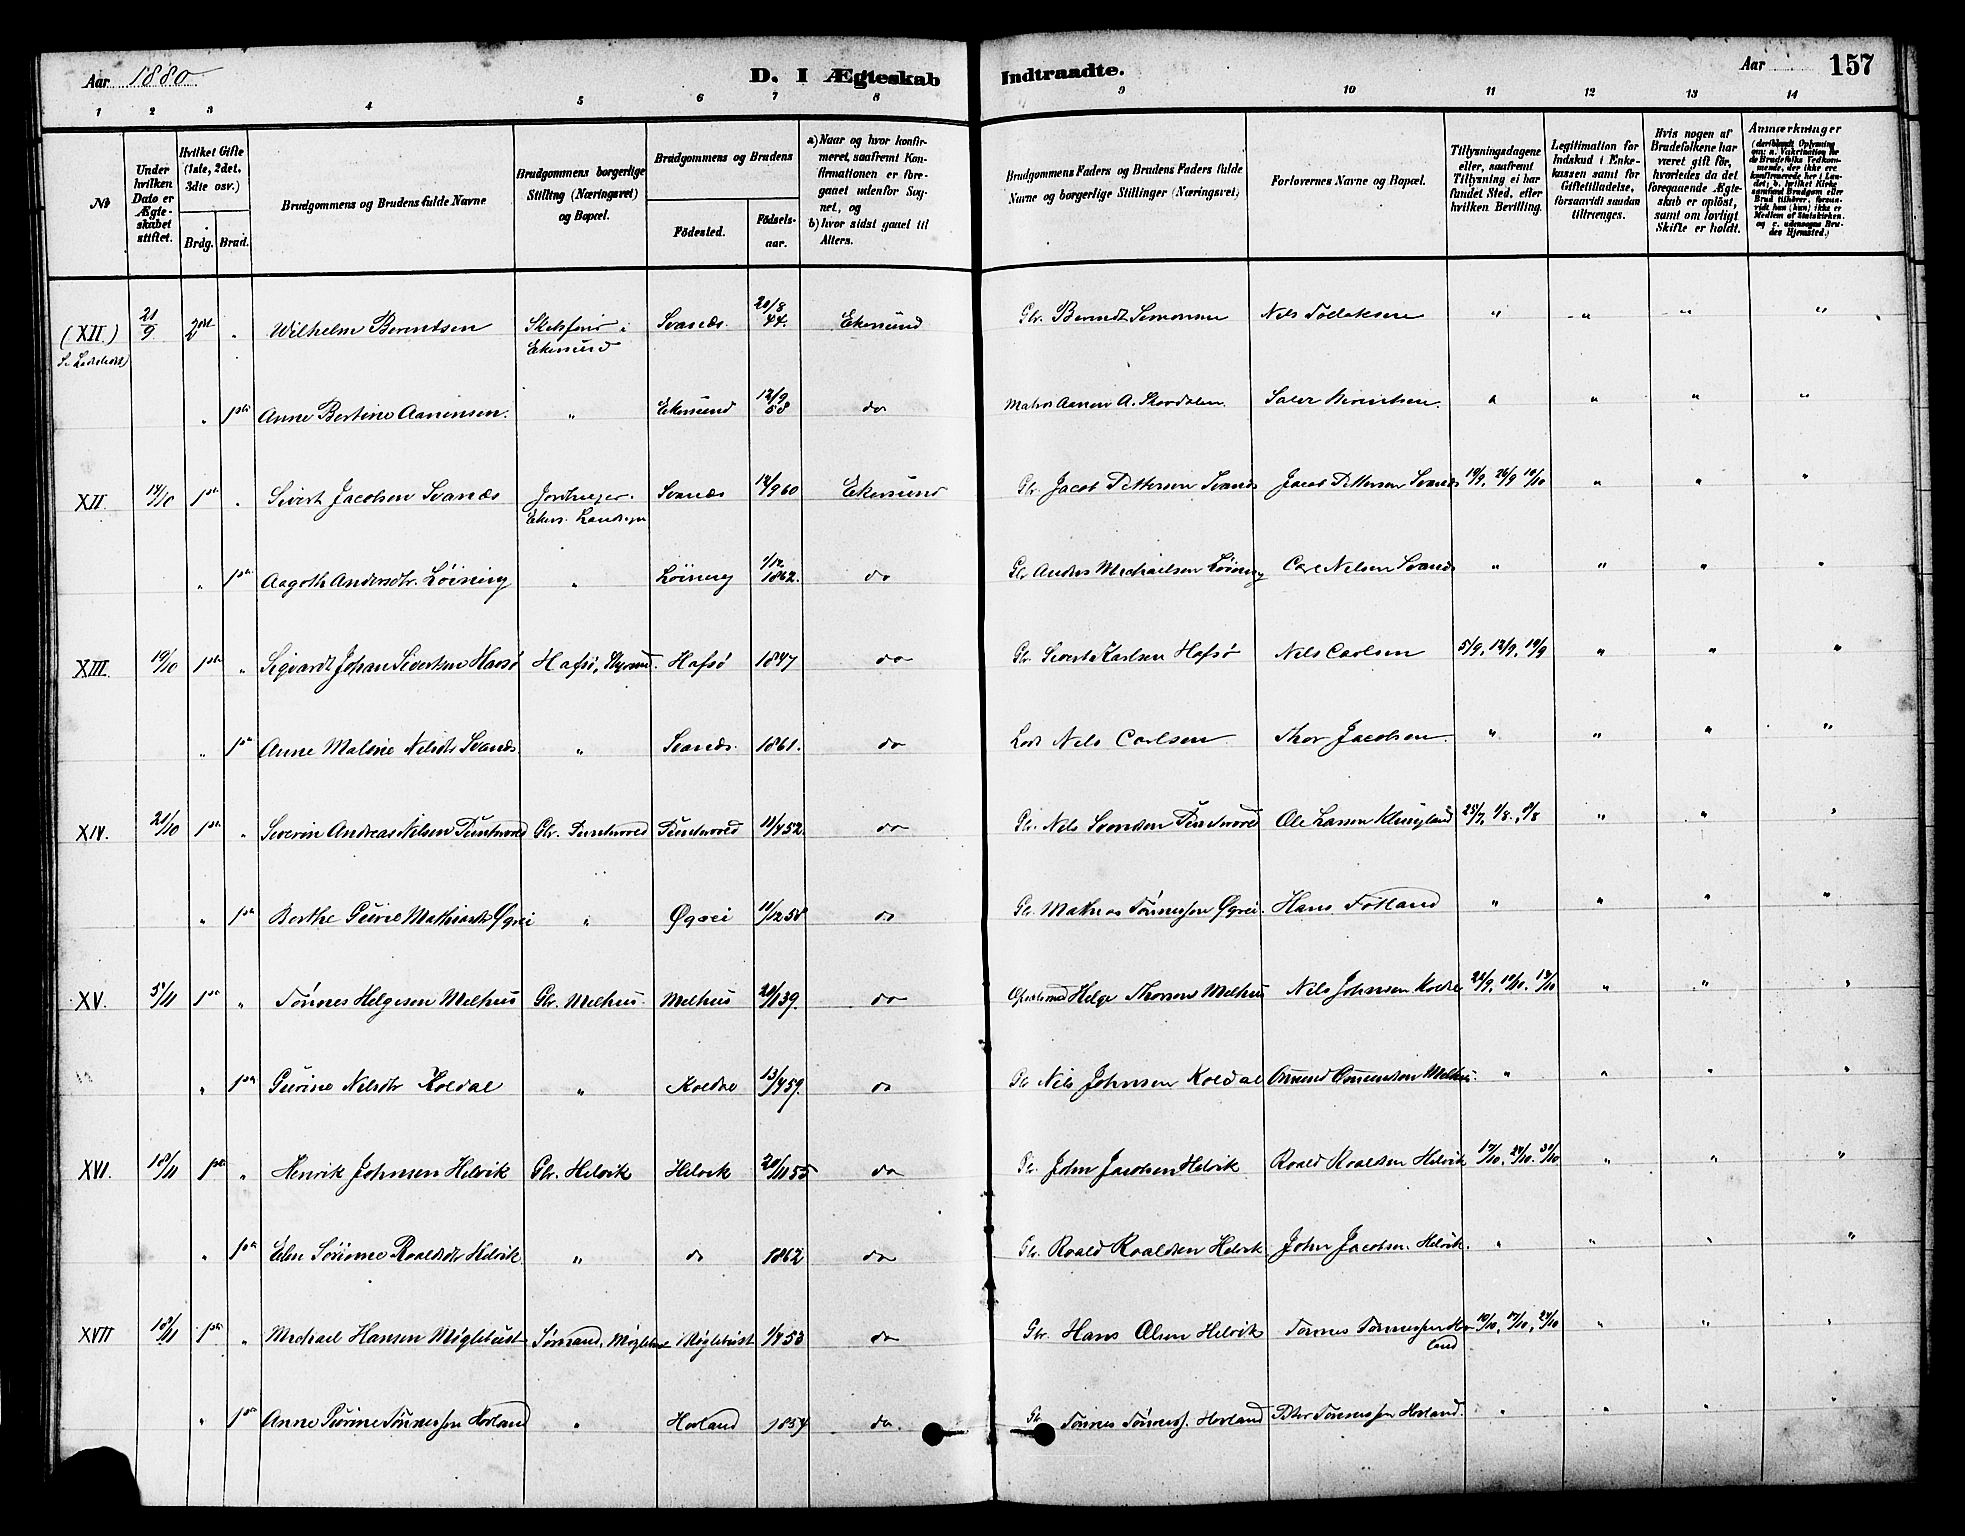 Aar 1880 D. I Ægteskab Indtraadte. Aar 157
1 2 3 4 5 6 7 8 9 10 11 12 13 14
No
Under hvilken Dato er Ægteskabet stiftet.
Hvilket Gifte (1ste, 2det, 3dte osv.)
Brdg. Brud.
Brudgommens og Brudens fulde Navne
Brudgommens borgerlige Stilling (Næringsvei) og Bopæl.
Brudgommens og Brudens
Fødested. Fødselsaar.
a) Naar og hvor konfirmeret, saafremt Konfirmationen er foregaaet udenfor Sognet, og
b) hvor sidst gaaet til Alters.
Brudgommens Faders og Brudens Faders fulde Navne og borgerlige Stillinger (Næringsvei)
Forlovernes Navne og Bopæl.
Tillysningsdagene eller, saafremt Tillysning ei har fundet Sted, efter hvilken Bevilling.
Legitimation for Indskud i Enkekassen samt for Giftetilladelse, forsaavidt saadan tiltrænges.
Hvis nogen af Brudefolkene har været gift før, hvorledes da det foregaaende Ægteskab er opløst, samt om lovligt Skifte er holdt.
Anmærkninger
(XII) 21/9 2det " Wilhelm Berentsen Skibsfører i Ekersund Svanæs 20/8 44. Ekersund Gbr. Berndt Simonsen Nils Tollaksen " " " "
" 1ste Anne Bertine Aanensen. " Ekersund 12/9 58 do Matros Aanen A. Skordalen. Salve Berentsen. " " " "
XII. 14/10 1ste " Sivert Jacobsen Svanæs Jordbruger. Ekers. Landsogn Svanæs 12/9 60 Ekersund Gbr. Jacob Pettersen Svanæs Jacob Pettersen Svanæs 19/9, 26/9 10/10 " " "
" 1ste Aagoth Andersdtr. Løining " Løining 1/12 1862. do Gbr Anders Michaelsen Løining Carl Nilsen Svanæs " " " "
XIII. 19/10 1ste " Sigvardt Johan Sivertsen Havsø Hafsø, Styrmd. Hafsø 1847 do Gbr. Sivert Karlsen Hafsø Nils Carlsen 5/9, 12/9, 19/9 " " "
" 1ste Anne Malene Nilsdtr Svanæs. " Svanæs. 1861. do Lods Nils Carlsen Thor Jacobsen. " " " "
XIV. 21/10 1ste " Severin Andreas Nilsen 11/4 52. do Gbr. Nils Svendsen Ole Larsen Klungland 25/7, 1/8., 8/8 " " "
" 1ste Berthe Gurine Mathiasdtr Øgrei " Øgrei 11/12 58 do Gbr. Mathias Tønnessen Øgrei. Hans Fotland " " " "
XV. 5/11 1ste " Tønnes Helgesen Melhus Gbr. Melhus. Melhus 20/1 39. do Helge Thorsen Melhus Nils Johnsen Koldal " " "
" 1ste Gurine Nilsdtr Koldal " Koldal 13/4 59. do Gbr Nils Johnsen Koldal Omund Omundsen Melhus. " " " "
XVI. 18/11 1ste " Henrik Johnsen Helvik Gbr. Helvik Helvik 20/11 55 do Gbr. John Jacobsen Helvik Roald Roaldsen Helvik 17/10, 24/10. 31/10 " " "
" 1ste Elen Sørine Roaldsdtr Helvik. " do 1862 do Gbr. Roald Roaldsen Helvik John Jacobsen Helvik. " " " "
XVII 18/11 1ste " Michael Hansen Møglebust Sømand, Møglebust Møglebust 1/4 53 do Gbr. Hans Olsen Helvik Tønnes Tønnessen Hovland 10/10, 17/10, 24/10 " " "
" 1ste Anne Gurine Tønnessen Hovland " Hovland 1854 do. Gbr Tønnes Tønness. Hovland Peter Tønnessen Hovland. " " " "